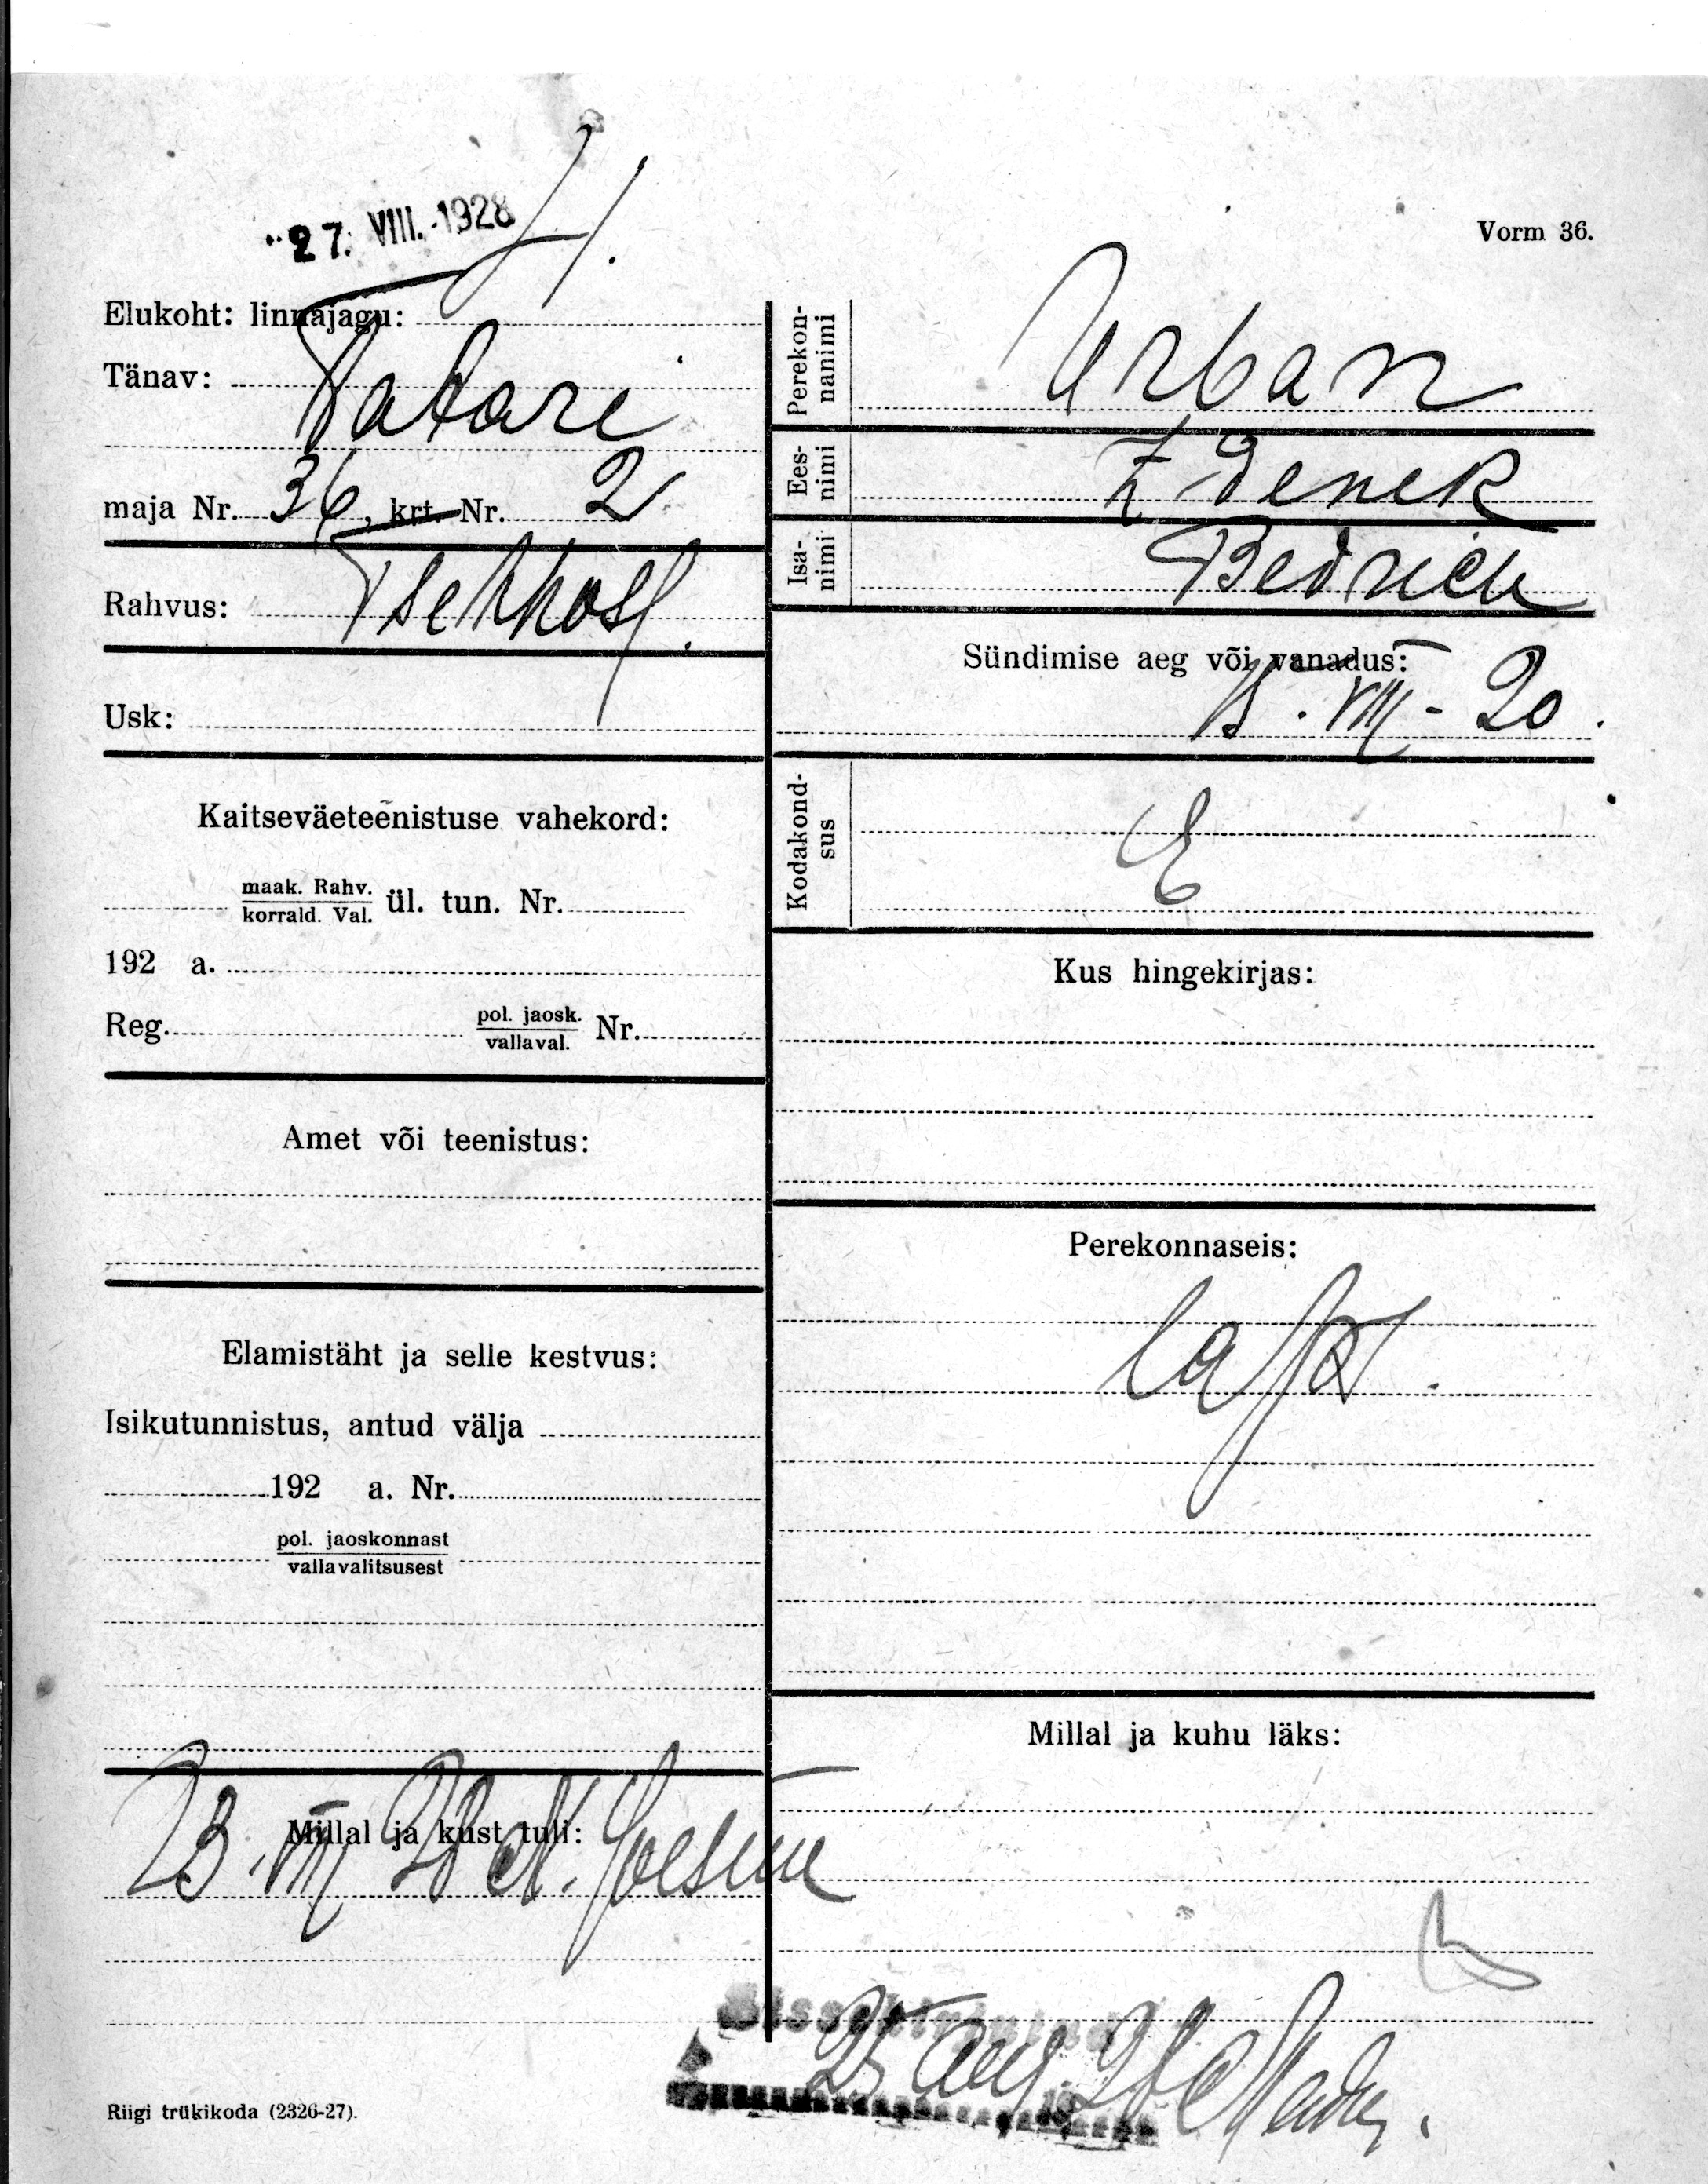 27. VIII. 1928
Vorm 36.
Elukoht: linnajagu:
Tänav: Tatari
maja Nr. 36, krt. Nr. 2
Rahvus: Tsehhosl.
Usk:
Kaitseväeteenistuse vahekord:
maak. Rahv.
korrald. Val. ül. tun. Nr.
192 a.
Reg. pol. jaosk.
vallaval. Nr.
Amet või teenistus:
Elamistäht ja selle kestvus:
Isikutunnistus, antud välja
192 a. Nr.
pol. jaoskonnast
vallavalitsusest
Millal ja kust tuli:
23. VIII 28 N. Joesuu
Riigi trükikoda (2326-27).
Perekon-
nanimi
Urban
Ees-
nimi
Zdenek
Isa-
nimi
Bedrich
Sündimise aeg või vanadus:
VIII - 20.
Kodakond-
sus
E
Kus hingekirjas:
Perekonnaseis:
laps.
Millal ja kuhu läks:
Sissekirjutud
25 aug. 28